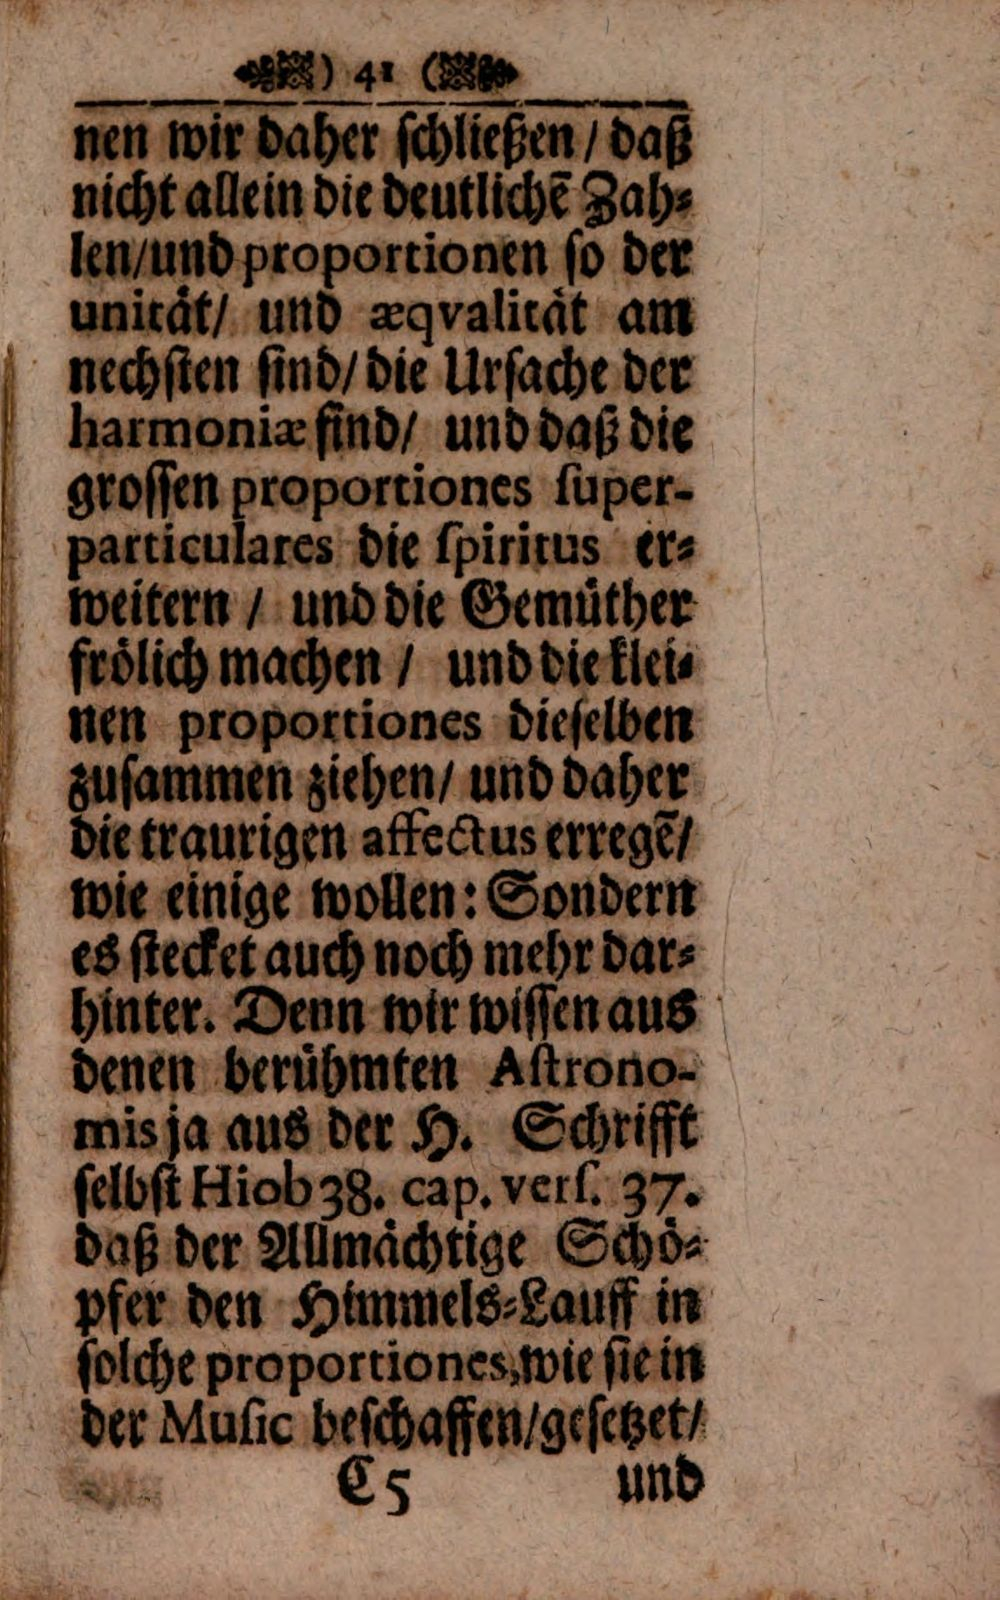 ) 41 (
nen wir daher ſchließen / daß
nicht allein die deutlichē Zah⸗
len/und proportionen ſo der
unitaͤt/ und æqvalitaͤt am
nechſten ſind/ die Urſache der
harmoniæ ſind/ und daß die
groſſen proportiones ſuper-
particulares die ſpiritus er⸗
weitern / und die Gemuͤther
froͤlich machen / und die klei⸗
nen proportiones dieſelben
zuſammen ziehen/ und daher
die traurigen affectus erregē/
wie einige wollen: Sondern
es ſtecket auch noch mehr dar⸗
hinter. Denn wir wiſſen aus
denen beruͤhmten Aſtrono-
mis ja aus der H. Schrifft
ſelbſt Hiob 38. cap. verſ. 37.
daß der Allmaͤchtige Schoͤ⸗
pfer den Himmels⸗Lauff in
ſolche proportiones, wie ſie in
der Muſic beſchaffen/geſetzet/
C 5 und